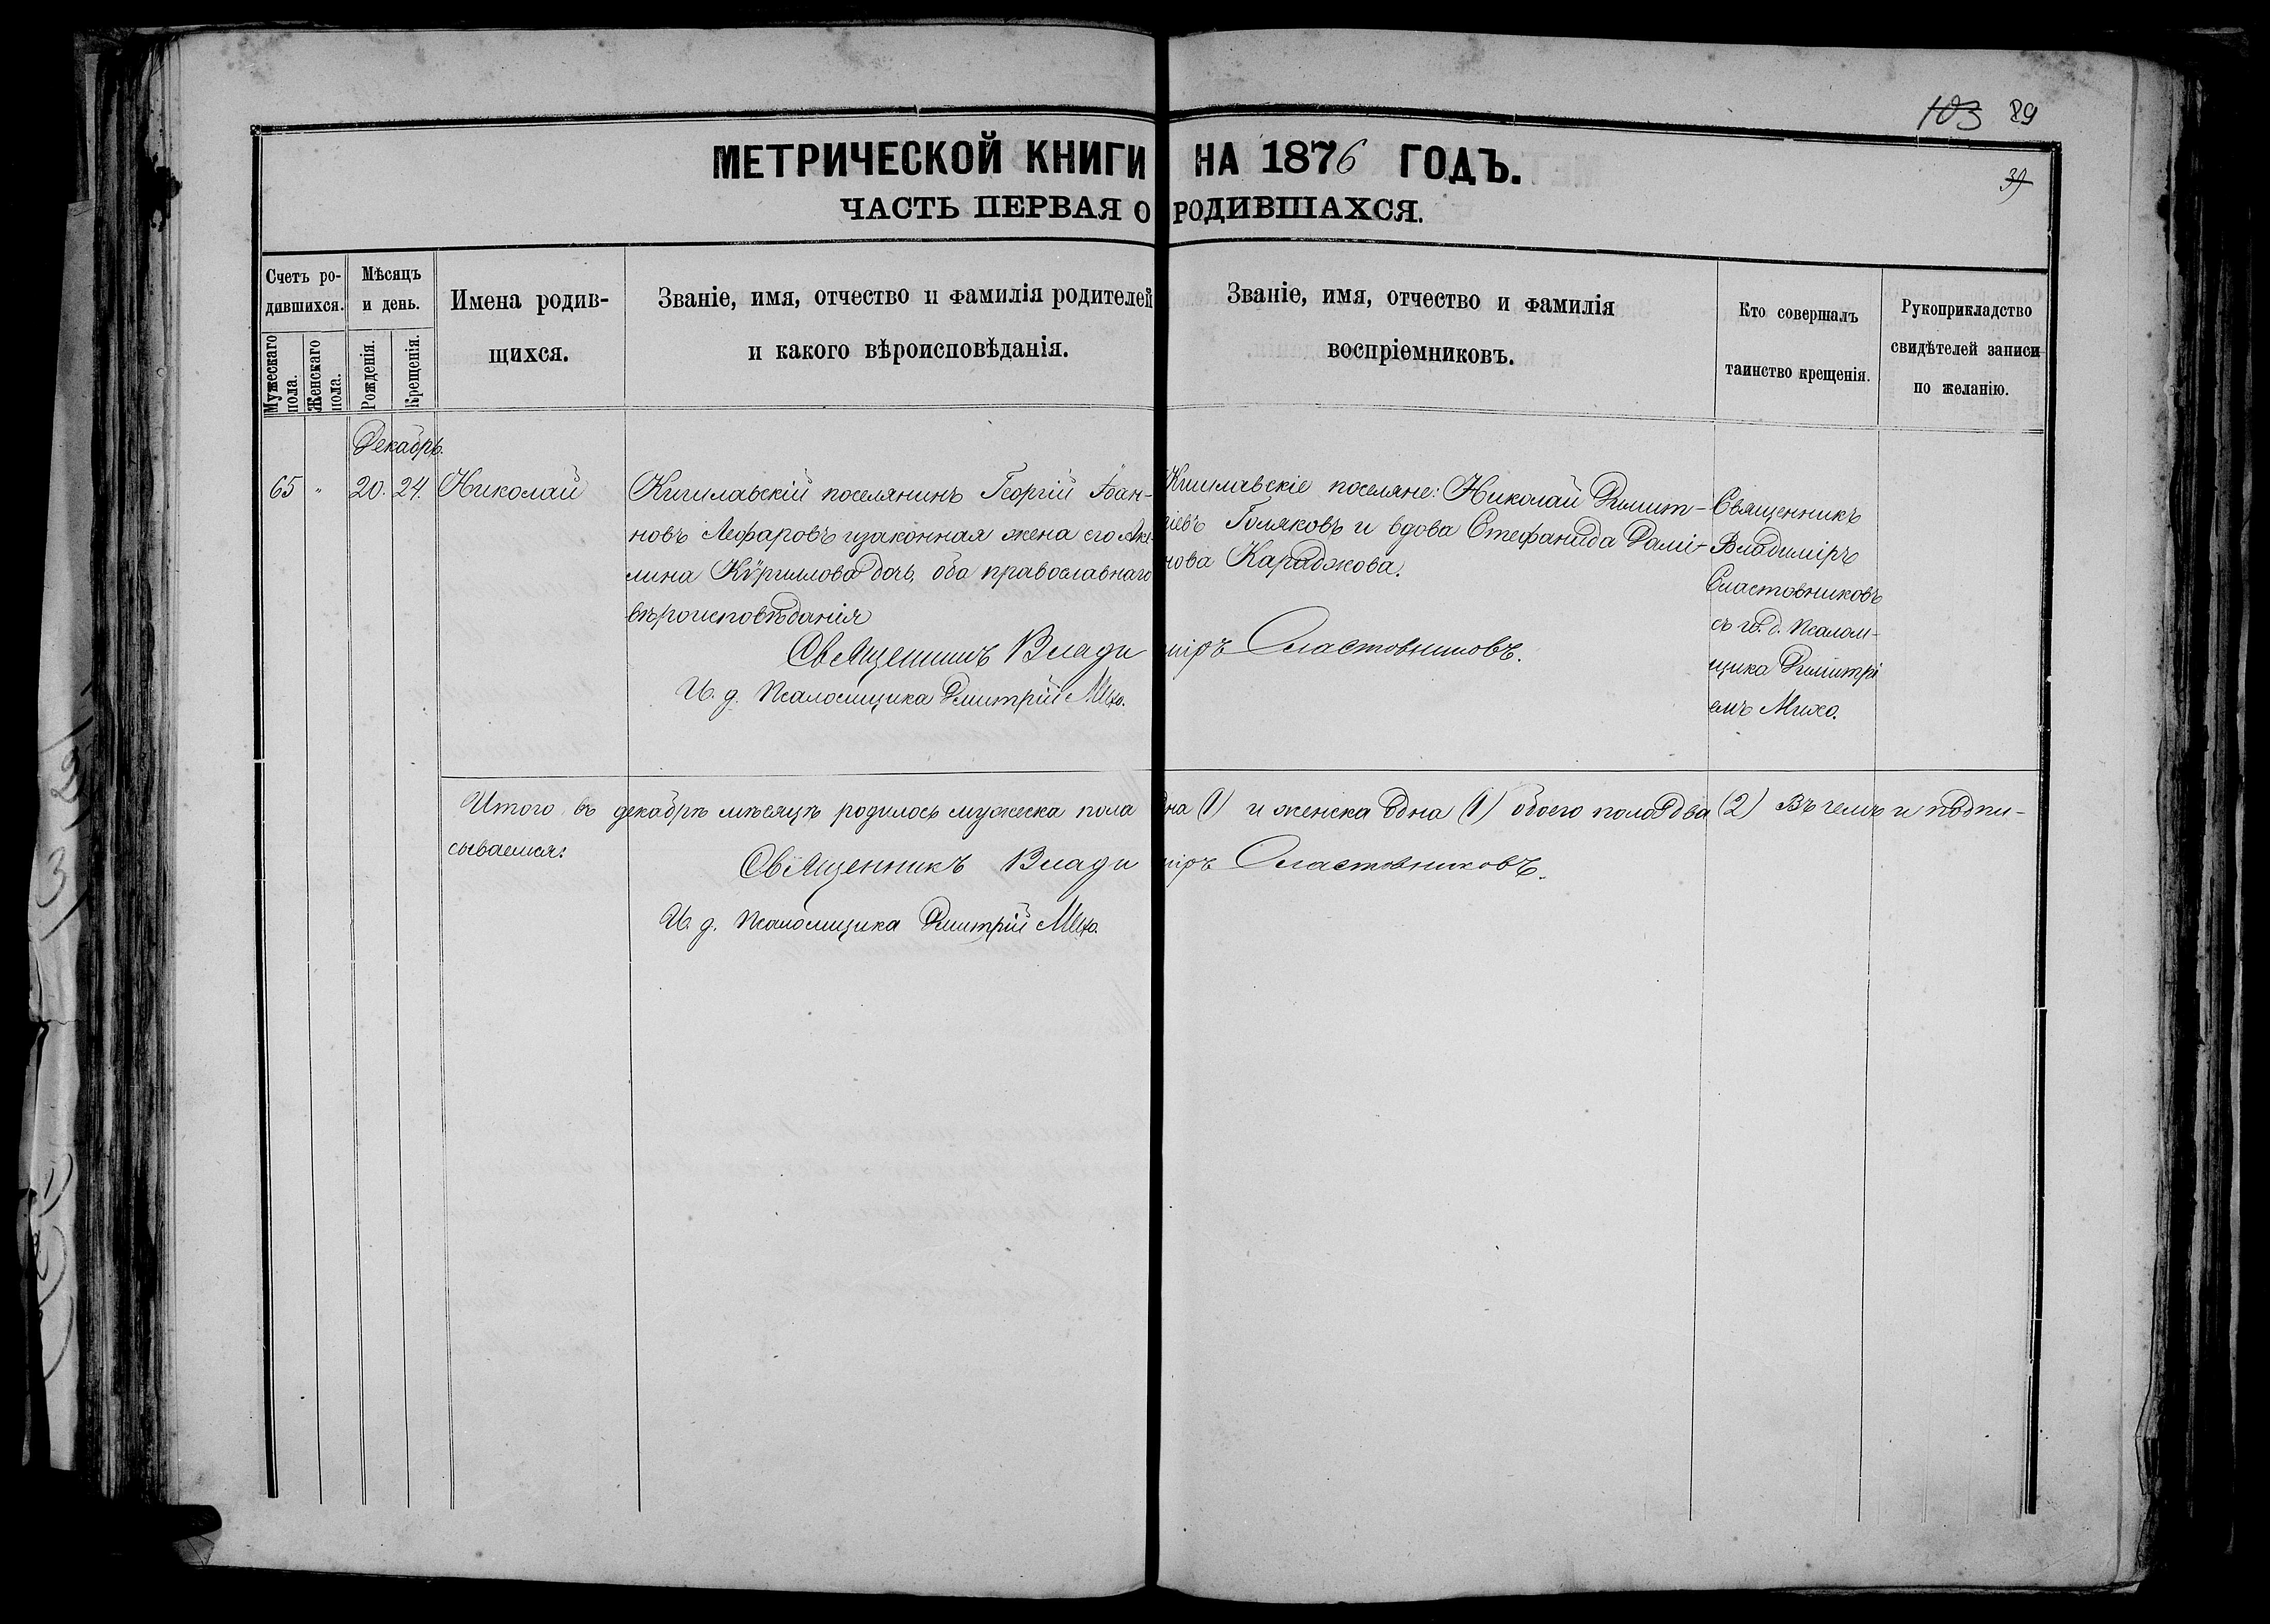 103 89
39
МЕТРИЧЕСКОЙ КНИГИ НА 1876 ГОДЪ.
ЧАСТЬ ПЕРВАЯ О РОДИВШАХСЯ.
Счетъ ро-
дившихся.
Мужескаго пола.
Женскаго пола.
Мѣсяцъ
и день.
Рожденія.
Крещенія.
Имена родив-
щихся.
Званіе, имя, отчество и фамилія родителей
и какого вѣроисповѣданія.
Званіе, имя, отчество и фамилія
воспріемниковъ.
Кто совершалъ
таинство крещенія.
Рукоприкладство
свидѣтелей записи
по желанію.
Декабрь.
65 " 20. 24. Николай
поселянинъ Георгій Іоан-
новъ Лефаровъ и законная жена его
лина Кѷриллова дочь, оба православнаго
вѣроисповѣданія
поселяне: Николай Димит-
ріевъ Голяковъ и вдова Стефанида Дамі-
нова Караджова.
Священникъ
Владиміръ
Сластовниковъ
съ и. д. псалом-
щика Димитрі
емъ Михо.
Священникъ Владиміръ Сластовниковъ.
И. д. Псаломщика Димитрій Михо.
Итого въ декабрѣ мѣсяцѣ родилось мужеска пола (1) и женска одна (1) обоего пола два (2) Въ чемъ и подпи-
сываемся:
Священникъ Владиміръ Сластовниковъ.
И. д. Псаломщика Димитрій Михо.